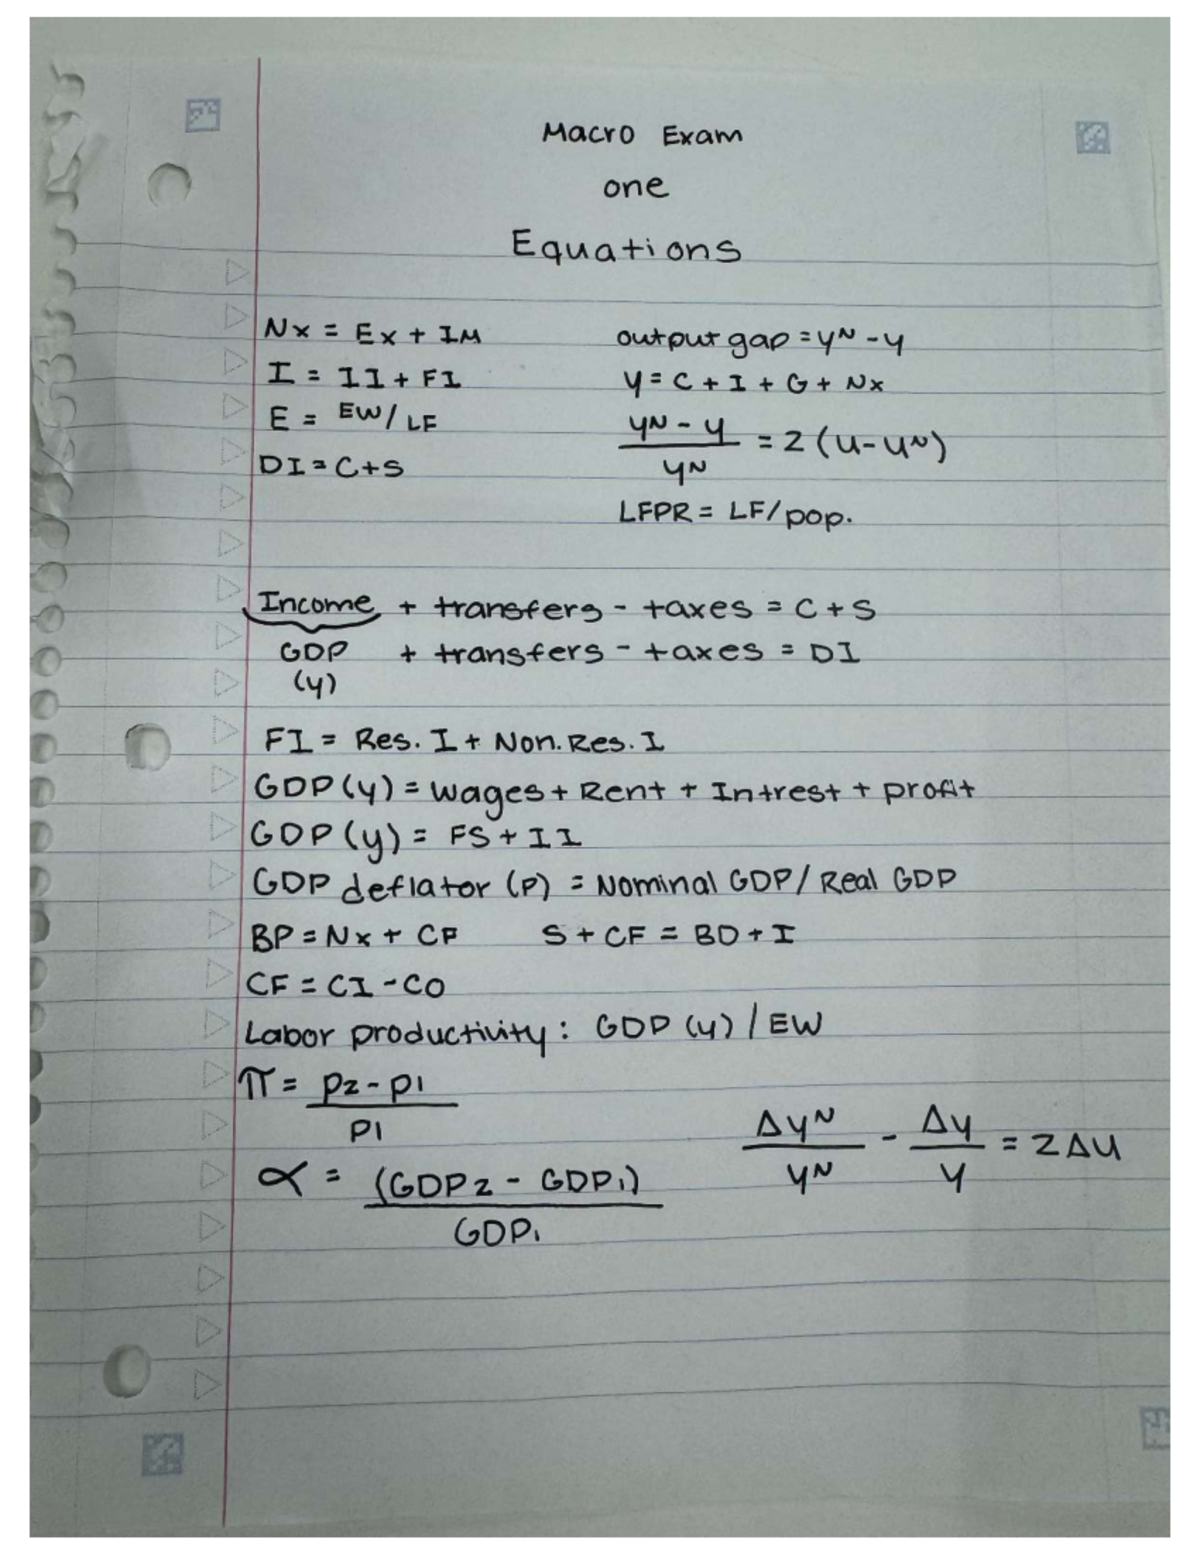 Macro Exam
one
Equations
Nx = Ex + IM
I = II + FI
E = EW/LF
DI = C+S
output gap = yᴺ - y
y = C + I + G + Nx
yᴺ - y / yᴺ = 2(u-uᴺ)
LFPR = LF/pop.
Income + transfers - taxes = C+S
GDP + transfers - taxes = DI
(y)
FI = Res. I + Non. Res. I
GDP (y) = wages + Rent + Intrest + profit
GDP (y) = FS + II
GDP deflator (P) = Nominal GDP / Real GDP
BP = Nx + CF S + CF = BD + I
CF = CI - CO
Labor productivity: GDP (y) / EW
π = p2 - p1 / p1
∝ = (GDP2 - GDP1) / GDP1
Δyᴺ / yᴺ - Δy / y = 2Δu